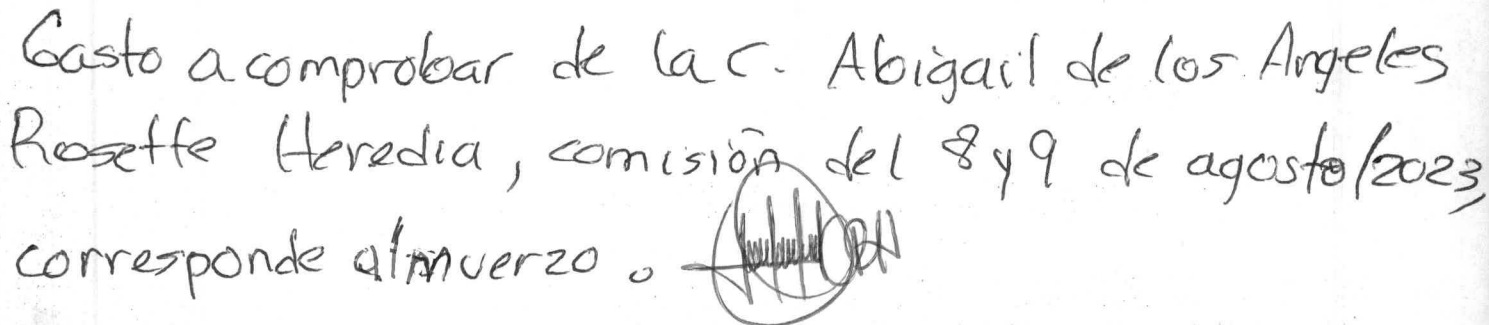 Gasto a comprobar de la C. Abigail de los Angeles
Rosette Heredia, comisión del 8 y 9 de agosto/2023,
corresponde almuerzo.